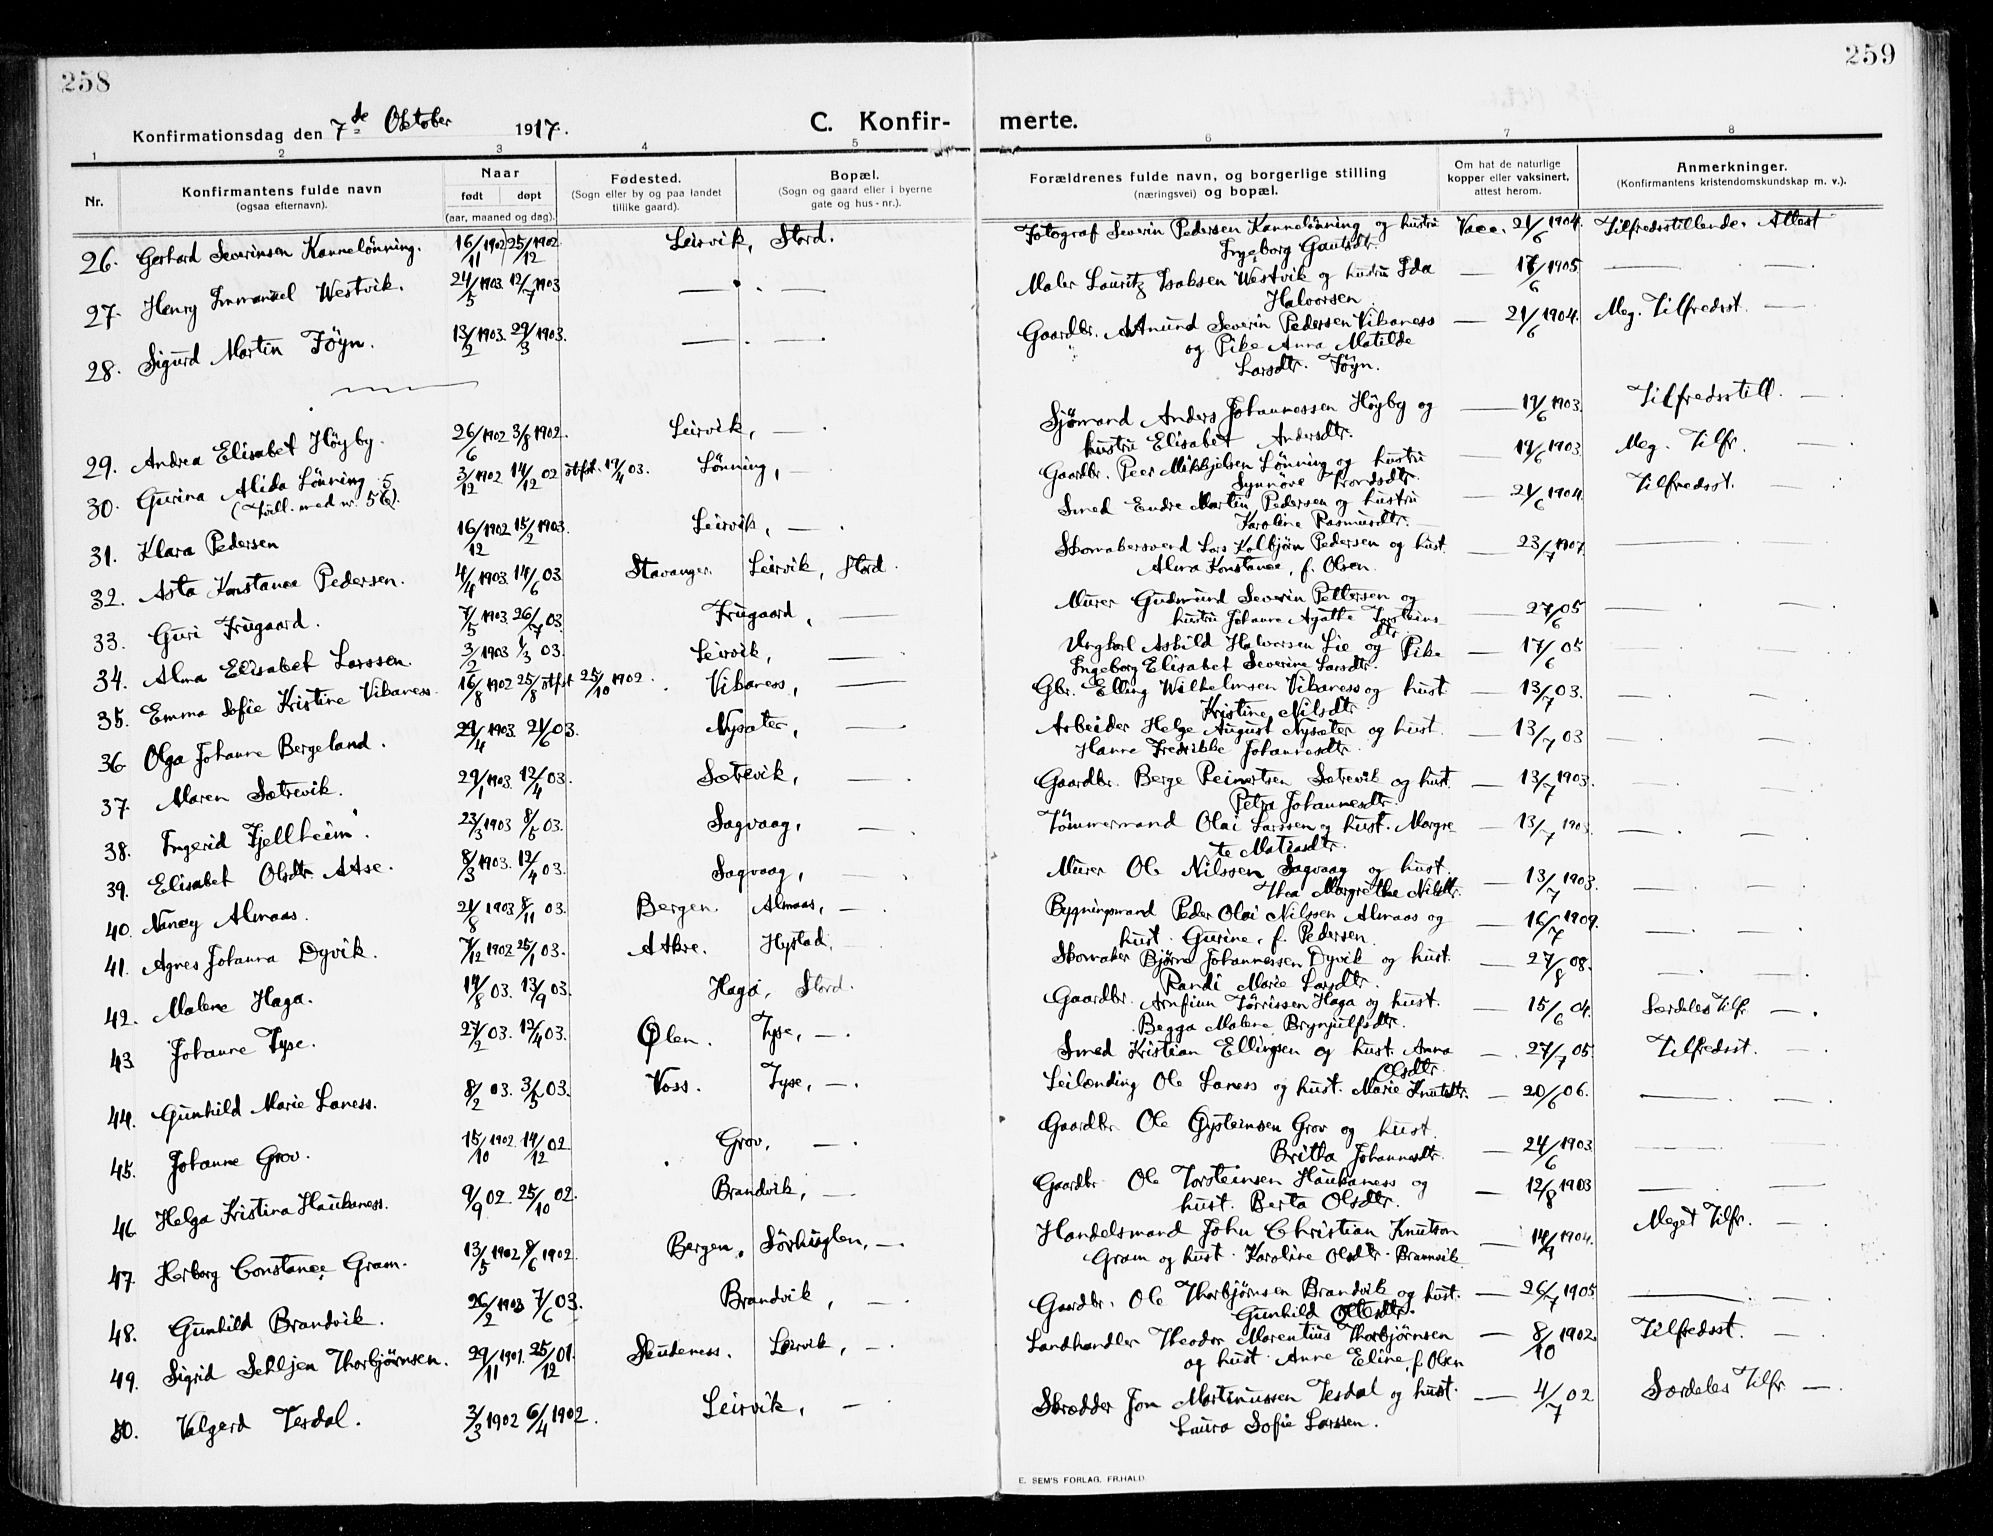 258
259
Konfirmationsdag den 7de Oktober 1917.
C. Konfir- merte.
1 2 3 4 5 6 7 8
Nr.
Konfirmantens fulde navn
(ogsaa efternavn).
Naar
født døpt
(aar, maaned og dag).
Fødested.
(Sogn eller by og paa landet
tillike gaard).
Bopæl.
(Sogn og gaard eller i byerne
gate og hus-nr.).
Forældrenes fulde navn, og borgerlige stilling
(næringsvei) og bopæl.
Om hat de naturlige
kopper eller vaksinert,
attest herom.
Anmerkninger.
(Konfirmantens kristendomskundskap m. v.).
26. Gerhard Severinsen Kannelönning. 16/11 1902 25/12 1902. Leirvik, Stord. Fotograf Severin Pedersen Kannelönning og hustru Vacc. 21/6 1904. Tilfredsstillende. Attest
Ingeborg Gautsdtr.
27. Henry Immanuel Westvik. 24/5 1903. 12/7 1903 — . — Maler Lauritz Isaksen Westvik og hustru Ida — 17/6 1905 — —
Halvorsen.
28. Sigurd Martin Föyn. 13/2 1903. 29/3 1903. — . — Gaardbr. Amund Severin Pedersen Vikaness — 21/6 1904. Meg. Tilfredsst. —
og Pike Anna Matilde
Larsdtr. Föyn.
29. Andrea Elisabet Höyby. 26/6 1902 3/8 1902. Leirvik, — . Sjömand Anders Johannessen Höyby og — 19/6 1903. Tilfredsstill. —
hustru Elisabet Andersdtr.
30. Gurina Alida Lönning 3/12 1902 14/12 02 stfst. 19/4 03. Lönning, — Gaardbr. Peer Mikkjelsen Lönning og hustru — 19/6 1903. Meg. Tilfr. —
(Tvill. med nr. 56). Synnöve Trondsdtr.
31. Klara Pedersen 16/12 1902 15/2 1903. Leirvik, — . Smed Endre Martin Pedersen og hustru — 21/6 1904. Tilfredsst. —
Karoline Rasmusdtr. —
32. Asta Konstance Pedersen. 4/4 1903. 14/6 03. Stavanger. Leirvik, Stord. Skomakersvend Lars Kolbjörn Pedersen og hust. — 23/7 1907. — —
Alma Konstance, f. Olsen.
33. Guri Frugaard. 7/5 1903. 26/7 03. Frugaard, — Murer Gudmund Severin Pettersen og — 27/6 05 — —
hustru Johanne Agathe Torsteins-
dtr.
34. Alma Elisabet Larssen. 3/2 1903 1/3 03. Leirvik, — Ungkarl Askild Halvorsen Lie og Pike — 17/6 05 — —
Ingeborg Elisabet Severine Larsdtr.
35. Emma Sofie Kristine Vikaness. 16/8 1902 25/8 stfst 25/10 1902. Vikaness, — Gbr. Elling Wilhelmsen Vikaness og hust — 13/7 03. — . —
Kristine Nilsdtr.
36. Olga Johanne Bergeland. 29/4 1903. 21/6 03. Nysæter, — Arbeider Helge August Nysæter og hust. — 13/7 03 — . —
Hanne Fredrikke Johannesdtr.
37. Maren Sætrevik. 29/1 1903. 12/4 03. Sætrevik, — . Gaardbr. Berge Reinertsen Sætrevik og hust. — 13/7 1903. — . —
Petra Johannesdtr.
38. Ingerid Fjellheim. 23/3 1903 8/6 03. Sagvaag, — . Tömmermand Olai Larssen og hust. Margre — 13/7 1903. — . —
te Matiasdtr.
39. Elisabet Olsdtr. Aase. 8/3 1903. 12/4 03. Sagvaag, — . Murer Ole Nilssen Sagvaag og hust. — 13/7 1903. — . —
Thea Margrethe Nilsdtr.
40. Nancy Almaas. 21/8 1903 8/11 03. Bergen. Almaas, — . Bygningsmand Peder Olai Nilssen Almaas og — 16/7 1909. — . —
hust. Gurine, f. Pedersen.
41. Agnes Johanna Dyvik. 7/12 1902 25/1 03. Atkre. Hystad, — Skomaker Björne Johannessen Dyvik og hust. — 27/8 08. — . —
Randi Marie Larsdtr.
42. Malene Haga. 19/8 03. 13/9 03. Haga, Stord. Gaardbr. Arnfinn Törrissen Haga og hust. — 15/6 04. Særdeles Tilfr. — .
Begga Malene Brynjulfsdtr.
43 Johanne Tyse. 27/2 03. 12/4 03. Ølen. Tyse, — . Smed Kristian Ellingsen og hust. Anna — . 27/7 05. Tilfredsst. — .
Olsdtr.
44. Gunhild Marie Laness. 8/2 03. 3/5 03. Voss. Tyse, — . Leilænding Ole Laness og hust. Marie Knutsdtr. — 20/6 06. — — .
45. Johanne Grov. 15/10 1902 14/12 02 Grov, — . Gaardbr. Ole Øysteinsen Grov og hust. — 24/6 1903. — —
Britha Johannesdtr.
46. Helga Kristina Haukaness. 9/9 02. 25/10 02. Brandvik, — . Gaardbr. Ole Torsteinsen Haukaness og — 12/8 1903 — —
hust. Berta Olsdtr.
47. Herborg Constance Gram. 13/5 1902 8/6 1902. Bergen. Sörhuglen, — Handelsmand John Christian Knutson — 14/9 1904. Meget Tilfr. —
Gram og hust. Karoline Olsdtr. Brannvik
48. Gunhild Brandvik. 26/2 1903 7/6 03. Brandvik, — . Gaardbr. Ole Thorbjörnsen Brandvik og hust. — 26/7 1905 — — .
Gunhild Olsdtr.
49. Sigrid Seltjen Thorbjörnsen. 29/11 1901. 25/12 01. Skudeness. Leirvik, — . Landhandler Theodor Marentius Thorbjörnsen — 8/10 1902. Tilfredsst. — .
og hust. Anne Eline, f. Olsen
50. Valgerd Tesdal. 3/3 1902 6/4 1902. Leirvik, — . Skrædder Jon Martinussen Tesdal og hust. — 4/7 02 Særdeles Tilfr. — .
Laura Sofie Larssen.
E. SEM'S FORLAG, FR.HALD